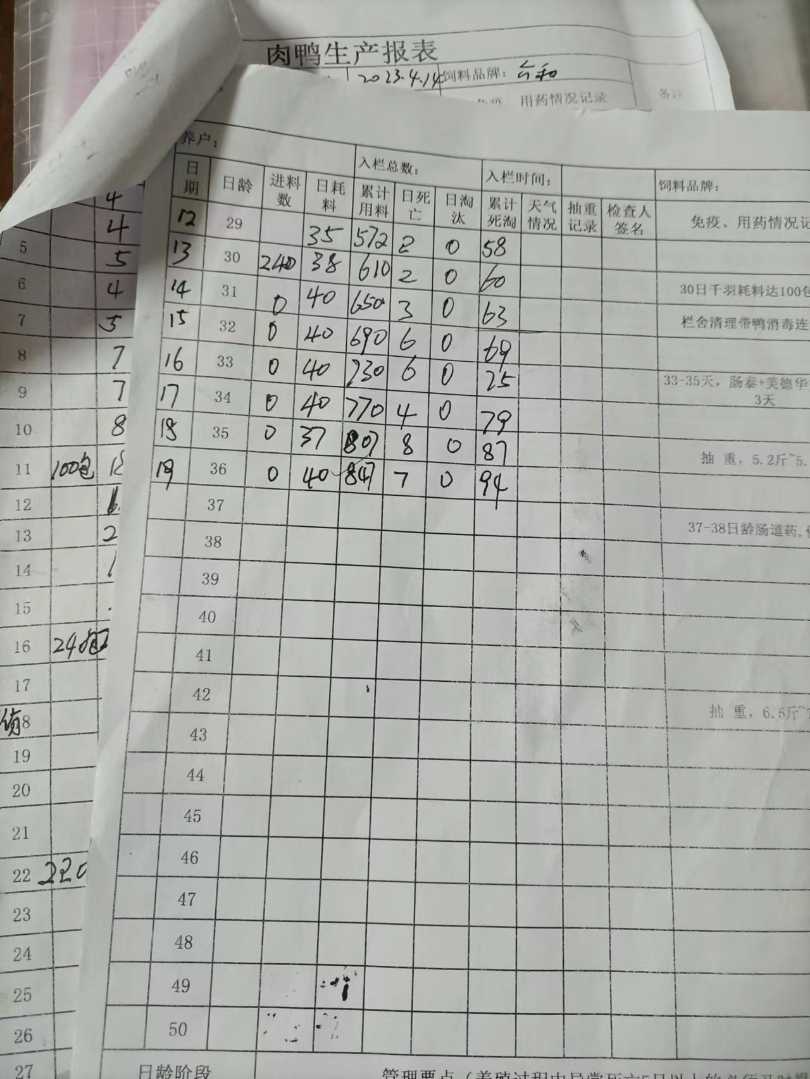 肉鸭生产报表
2023.4.14 饲料品牌: 六和
用药情况记录 备注
养户: 入栏总数: 入栏时间: 饲料品牌:
日期 日龄 进料数 日耗料 累计用料 日死亡 日淘汰 累计死淘 天气情况 抽重记录 检查人签名 免疫、用药情况记
12 29 35 572 2 0 58
13 30 240 38 610 2 0 60 30日千羽耗料达100包
14 31 0 40 650 3 0 63 栏舍清理带鸭消毒连
15 32 0 40 690 6 0 69
16 33 0 40 730 6 0 75 33-35天, 肠泰+美德华 3天
17 34 0 40 770 4 0 79
18 35 0 37 807 8 0 87 抽 重, 5.2斤~5.
19 36 0 40 847 7 0 94
37 37-38日龄肠道药,
38
39
40
41
42 抽 重, 6.5斤~
43
44
45
46
47
48
49
50
日龄阶段 管理要点
4
4
5 5
6 4
7 5
8 7
9 7
10 8
11 100包
12
13 2
14
15
16 248包
17
18
19
20
21
22 220
23
24
25
26
27